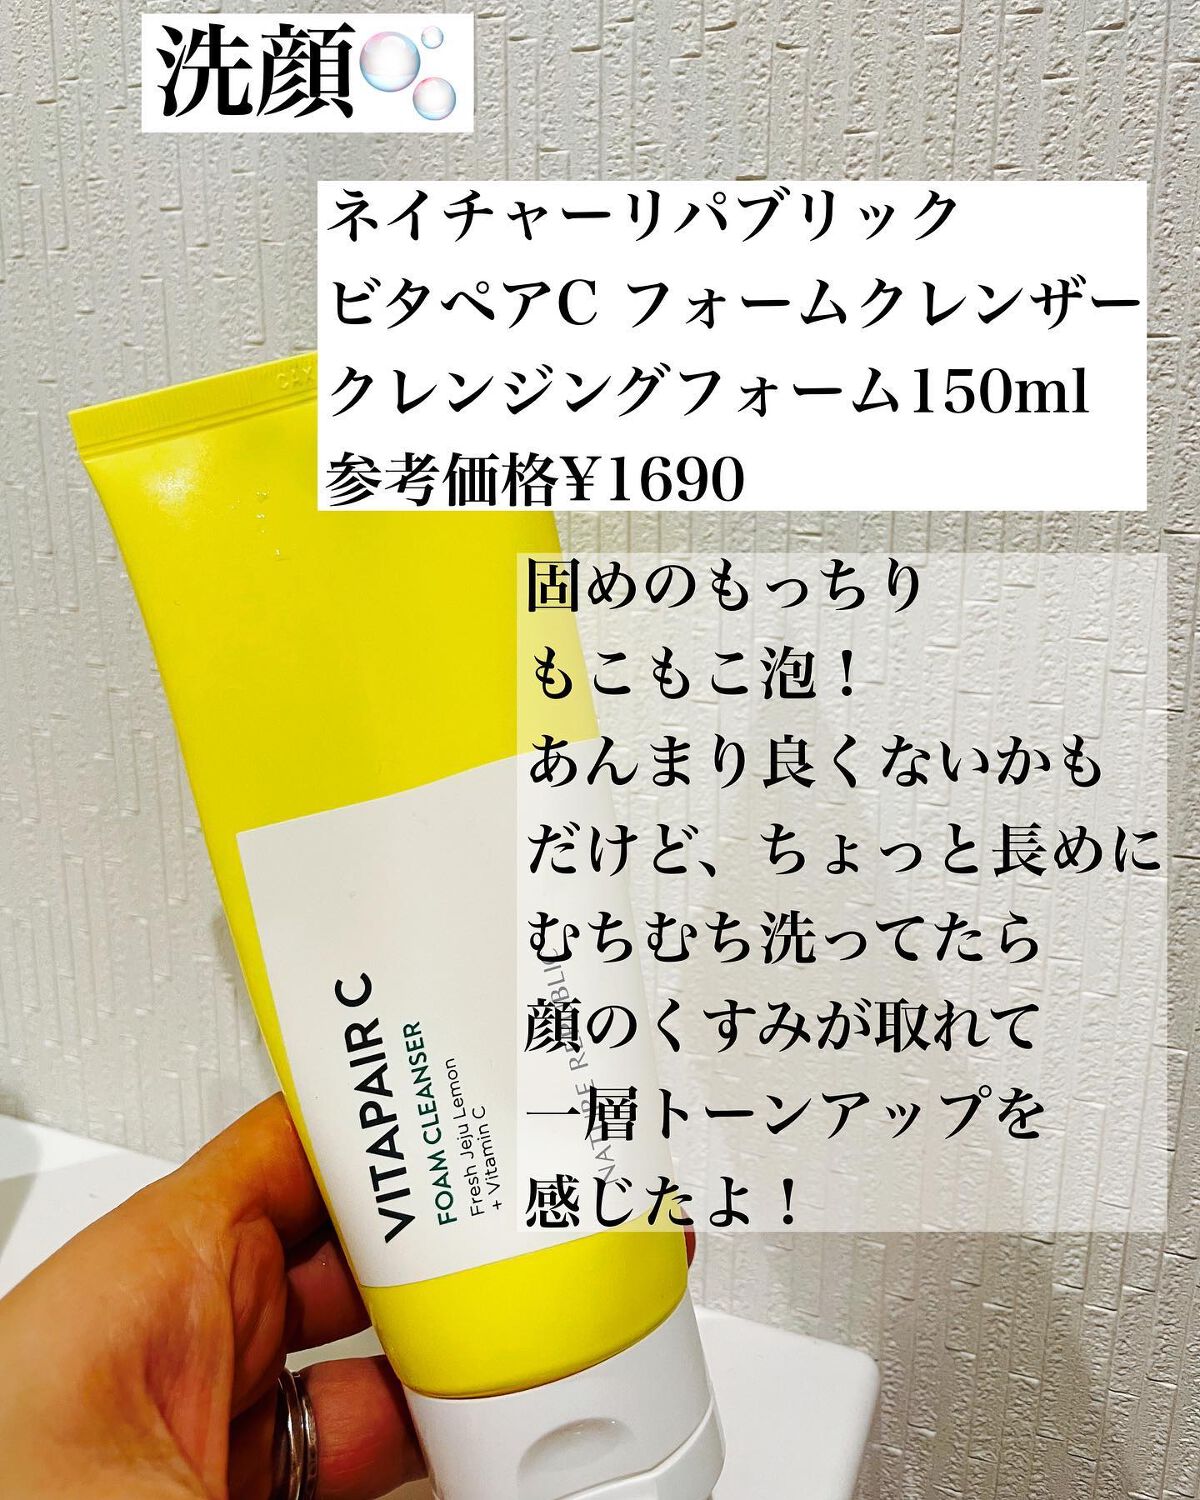 洗顔🫧
ネイチャーリパブリック
ビタペアC フォームクレンザー
クレンジングフォーム150ml
参考価格¥1690
固めのもっちり
もこもこ泡！
あんまり良くないかも
だけど、ちょっと長めに
むちむち洗ってたら
顔のくすみが取れて
一層トーンアップを
感じたよ！
VITAPAIR C
FOAM CLEANSER
Fresh Jeju Lemon
+ Vitamin C
NATURE REPUBLIC